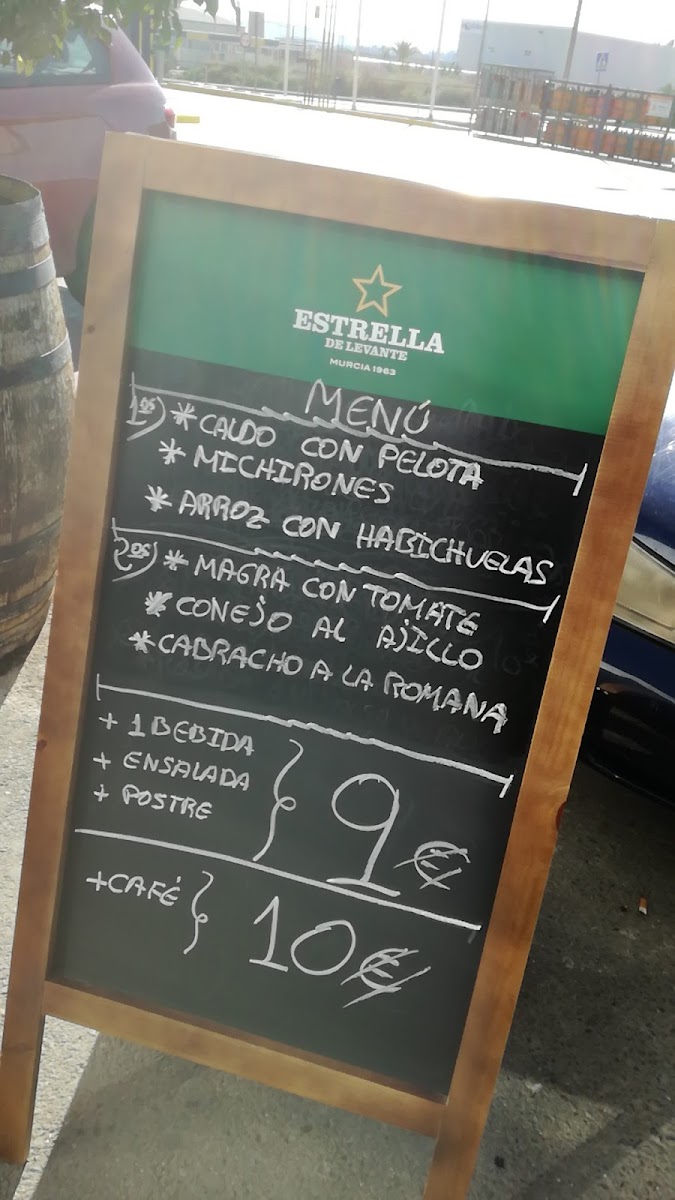 ESTRELLA
DE LEVANTE
MURCIA 1963
MENÚ
1os) * CALDO CON PELOTA
* MICHIRONES
* ARROZ CON HABICHUELAS
2os) * MAGRA CON TOMATE
* CONEJO AL AJILLO
* CABRACHO A LA ROMANA
+ 1 BEBIDA
+ ENSALADA
+ POSTRE
9€
+CAFÉ
10€